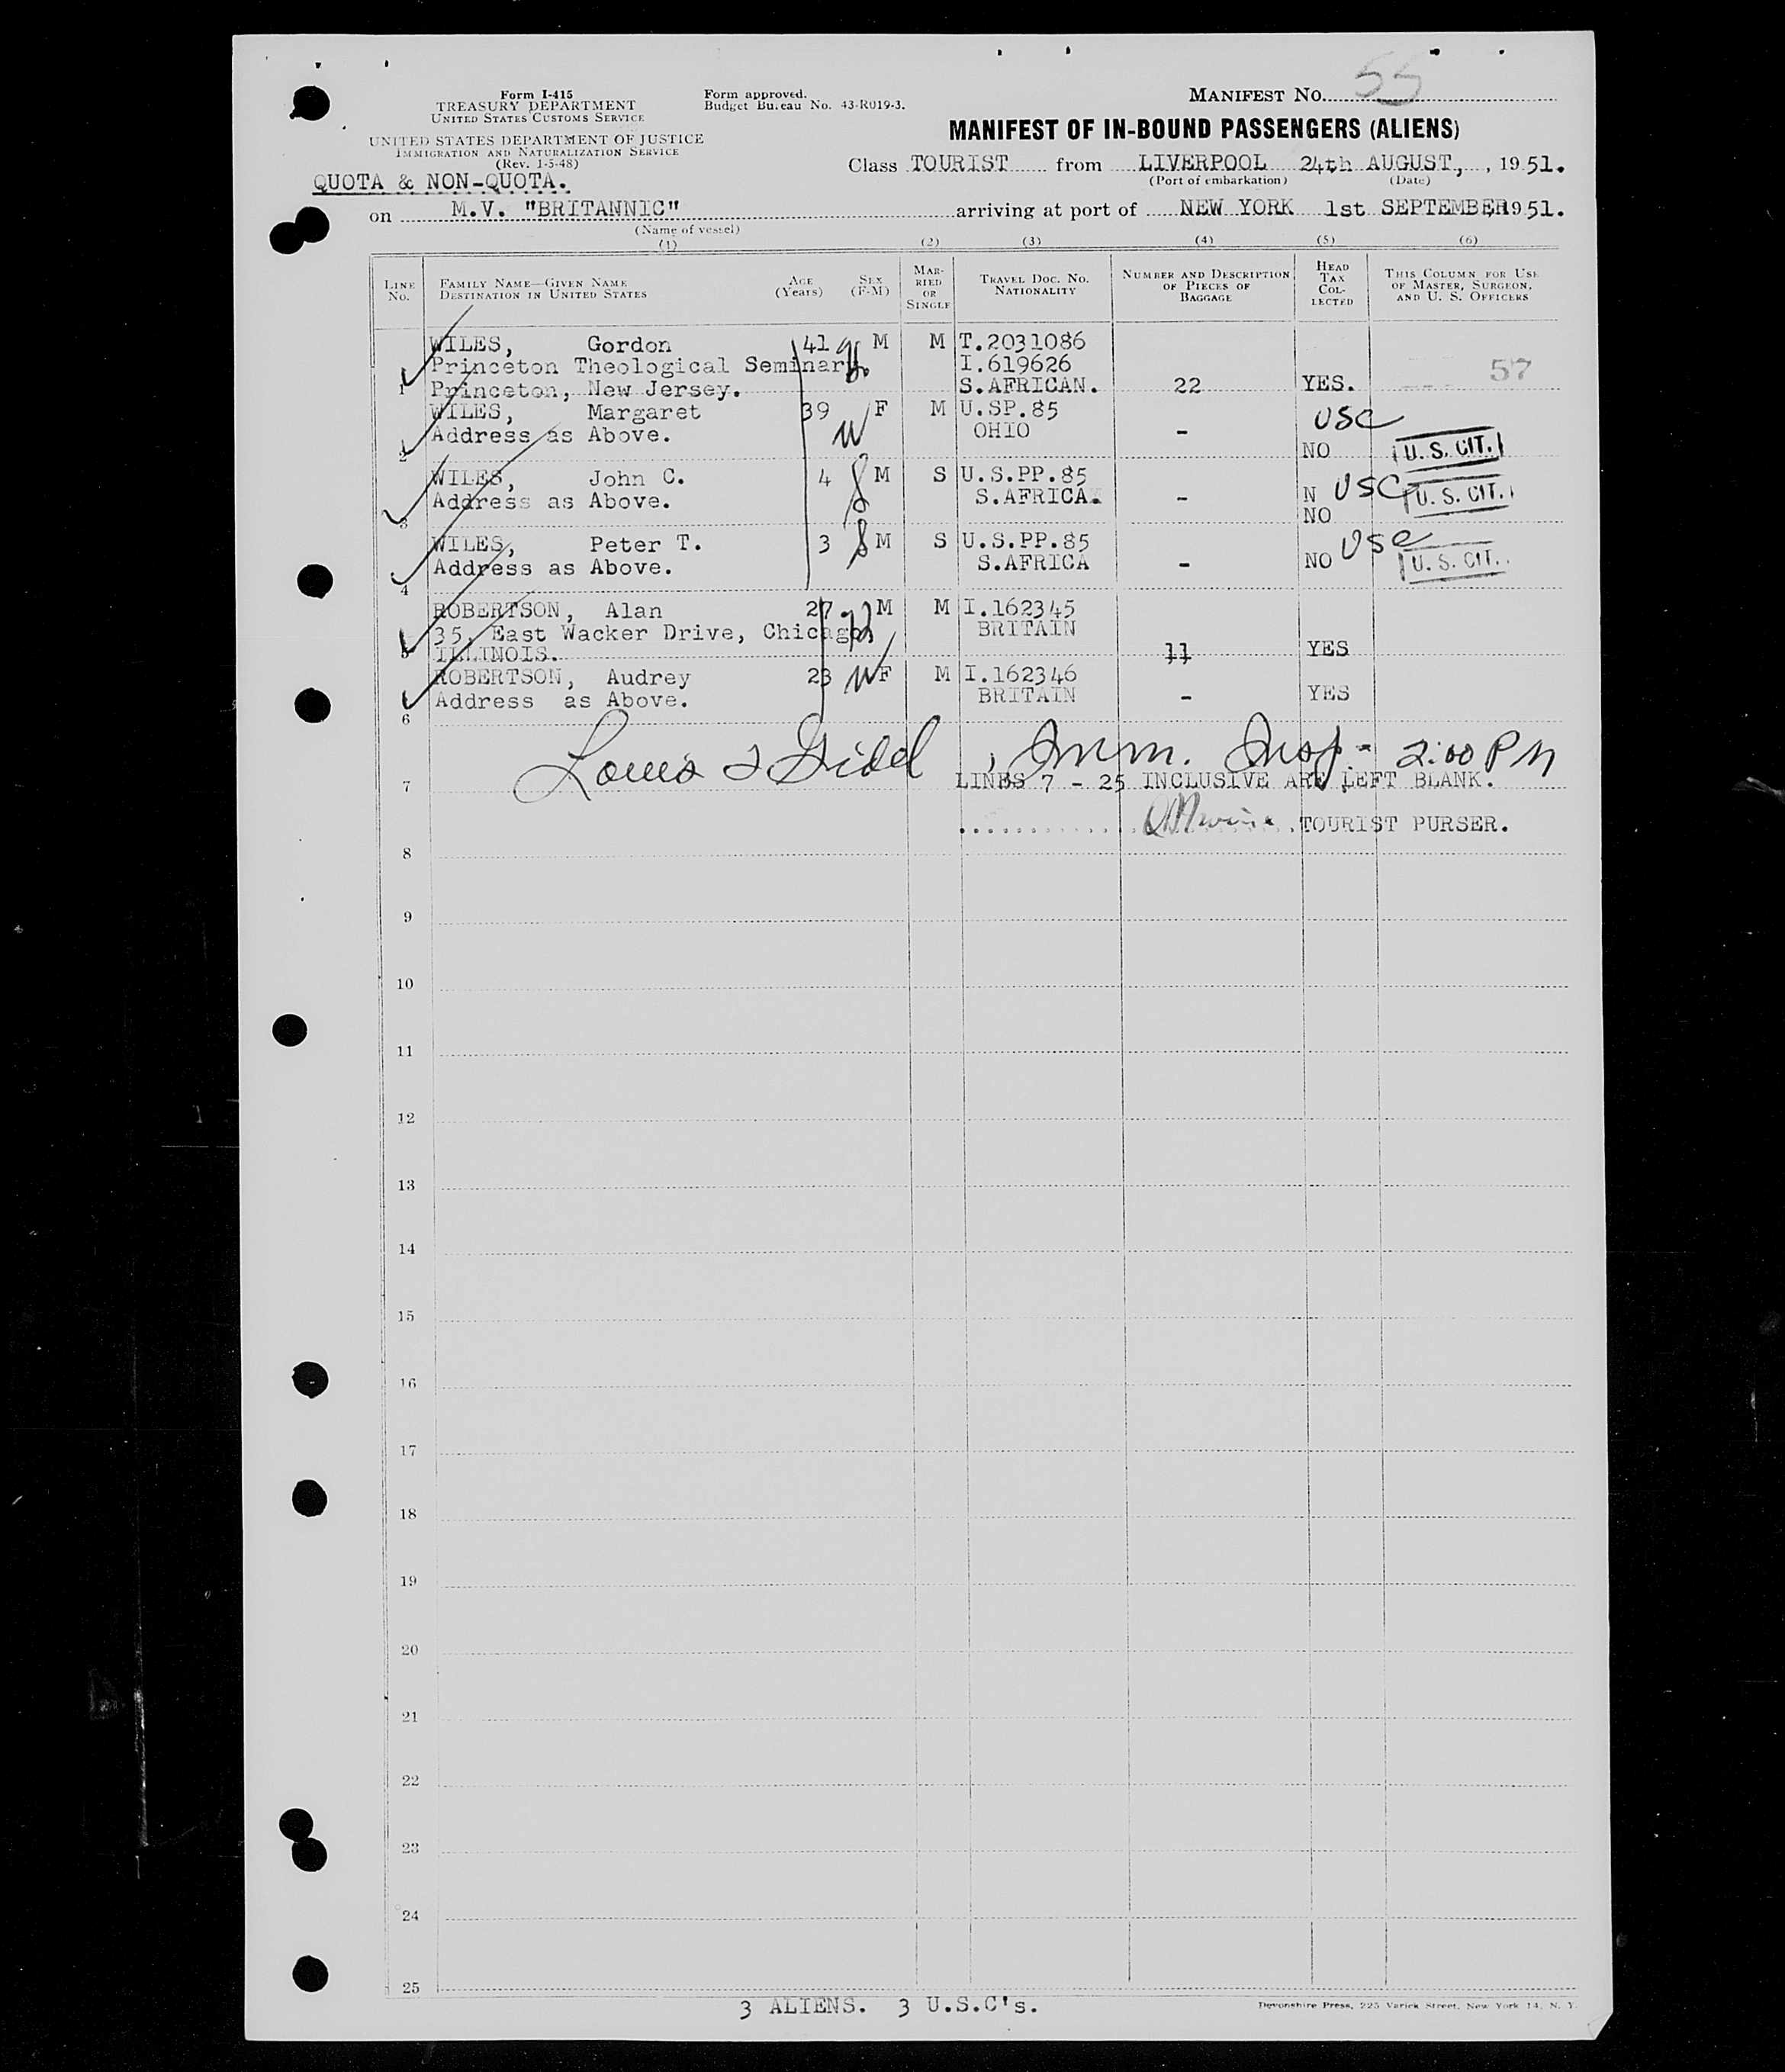 Form I-415
TREASURY DEPARTMENT
UNITED STATES CUSTOMS SERVICE
UNITED STATES DEPARTMENT OF JUSTICE
IMMIGRATION AND NATURALIZATION SERVICE
(Rev. 1-5-48)
QUOTA & NON-QUOTA.
Form approved.
Budget Bureau No. 43-R019-3.
MANIFEST No. 55
MANIFEST OF IN-BOUND PASSENGERS (ALIENS)
Class TOURIST from LIVERPOOL 24th AUGUST, , 1951.
(Port of embarkation) (Date)
on M.V. "BRITANNIC" arriving at port of NEW YORK 1st SEPTEMBER 1951.
(Name of vessel)
(1) (2) (3) (4) (5) (6)
LINE No. FAMILY NAME—GIVEN NAME DESTINATION IN UNITED STATES AGE (Years) SEX (F-M) MARRIED OR SINGLE TRAVEL DOC. NO. NATIONALITY NUMBER AND DESCRIPTION OF PIECES OF BAGGAGE HEAD TAX COLLECTED THIS COLUMN FOR USE OF MASTER, SURGEON, AND U. S. OFFICERS
WILES, Gordon 41 M M T.2031086
Princeton Theological Seminary. I.619626 57
1 Princeton, New Jersey. S.AFRICAN. 22 YES.
WILES, Margaret 39 F M U.SP.85 USC
Address as Above. W OHIO -
2 NO U. S. CIT.
WILES, John C. 4 M S U.S.PP.85
Address as Above. S.AFRICA. - N USC U. S. CIT.
3 NO
WILES, Peter T. 3 M S U.S.PP.85 USC
Address as Above. S.AFRICA - NO U. S. CIT.
4
ROBERTSON, Alan 27 M M I.162345
35, East Wacker Drive, Chicago, BRITAIN
5 ILLINOIS. 11 YES
ROBERTSON, Audrey 23 W F M I.162346
Address as Above. BRITAIN - YES
6
Imm. Insp. - 2:00 PM
7 LINES 7 - 25 INCLUSIVE ARE LEFT BLANK.
TOURIST PURSER.
8
9
10
11
12
13
14
15
16
17
18
19
20
21
22
23
24
25
3 ALIENS. 3 U.S.C's.
Devonshire Press, 225 Varick Street, New York 14, N. Y.